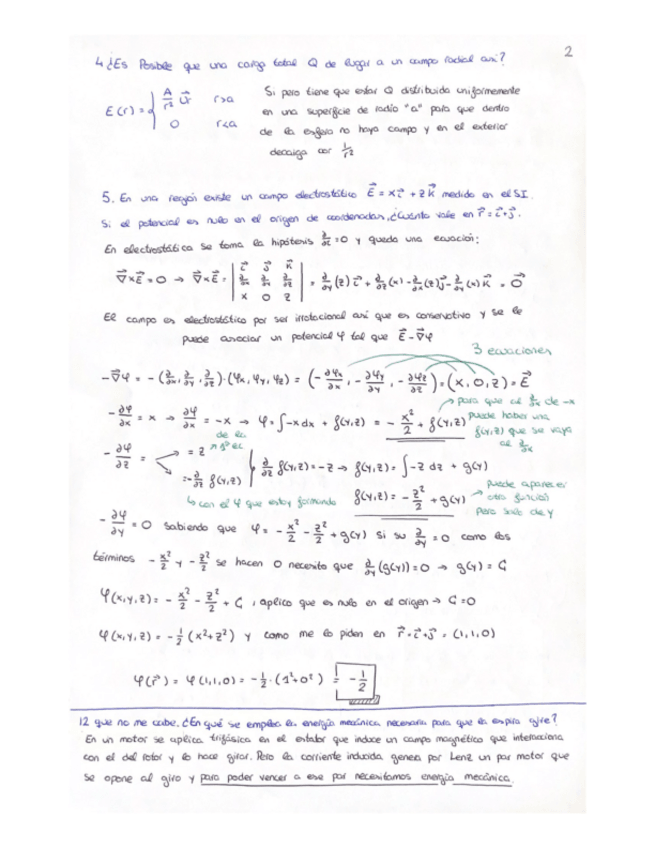 2
4 ¿Es Posible que una carga total Q de lugar a un campo radial así?
E(r) = { A/r² ûr r>a
0 r<a
Si pero tiene que estar Q distribuida uniformemente
en una superficie de radio "a" para que dentro
de la esfera no haya campo y en el exterior
decaiga con 1/r²
5. En una región existe un campo electrostático E⃗ = x i⃗ + z k⃗ medido en el SI.
Si el potencial es nulo en el origen de coordenadas, ¿Cuánto vale en r⃗ = i⃗ + j⃗.
En electrostática se toma la hipótesis ∂/∂t = 0 y queda una ecuación:
∇⃗×E⃗ = 0 → ∇⃗×E⃗ = | i⃗ j⃗ k⃗ | ∂/∂x ∂/∂y ∂/∂z | x 0 z | = ∂/∂y (z) i⃗ + ∂/∂z (x) - ∂/∂x (z) j⃗ - ∂/∂y (x) k⃗ = 0⃗
El campo es electrostático por ser irrotacional así que es conservativo y se le
puede asociar un potencial φ tal que E⃗ - ∇⃗φ
3 ecuaciones
-∇⃗φ = - (∂/∂x, ∂/∂y, ∂/∂z) · (φx, φy, φz) = (- ∂φx/∂x, - ∂φy/∂y, - ∂φz/∂z) = (x, 0, z) = E⃗
- ∂φ/∂x = x → ∂φ/∂x = -x → φ = ∫-x dx + f(y,z) = - x²/2 + f(y,z)
→ para que al ∂/∂x de -x
puede haber una
f(y,z) que se vaya
al ∂/∂x
- ∂φ/∂z = → = z de la 1ª ec
→ = - ∂/∂z f(y,z)
↳ con el φ que estoy formando
∂/∂z f(y,z) = -z → f(y,z) = ∫-z dz + g(y)
f(y,z) = - z²/2 + g(y)
→ puede aparecer
otra función
pero solo de y
- ∂φ/∂y = 0 sabiendo que φ = - x²/2 - z²/2 + g(y) si su ∂/∂y = 0 como los
términos - x²/2 y - z²/2 se hacen 0 necesito que ∂/∂y (g(y)) = 0 → g(y) = C
φ(x,y,z) = - x²/2 - z²/2 + C, aplico que es nulo en el origen → C = 0
φ(x,y,z) = - 1/2 (x² + z²) y como me lo piden en r⃗ = i⃗ + j⃗ = (1,1,0)
φ(r⃗) = φ(1,1,0) = - 1/2 · (1² + 0²) = - 1/2
12 que no me cabe. ¿En qué se emplea la energía mecánica necesaria para que la espira gire?
En un motor se aplica trifásica en el estator que induce un campo magnético que interacciona
con el del rotor y lo hace girar. Pero la corriente inducida genea por Lenz un par motor que
se opone al giro y para poder vencer a ese par necesitamos energía mecánica.